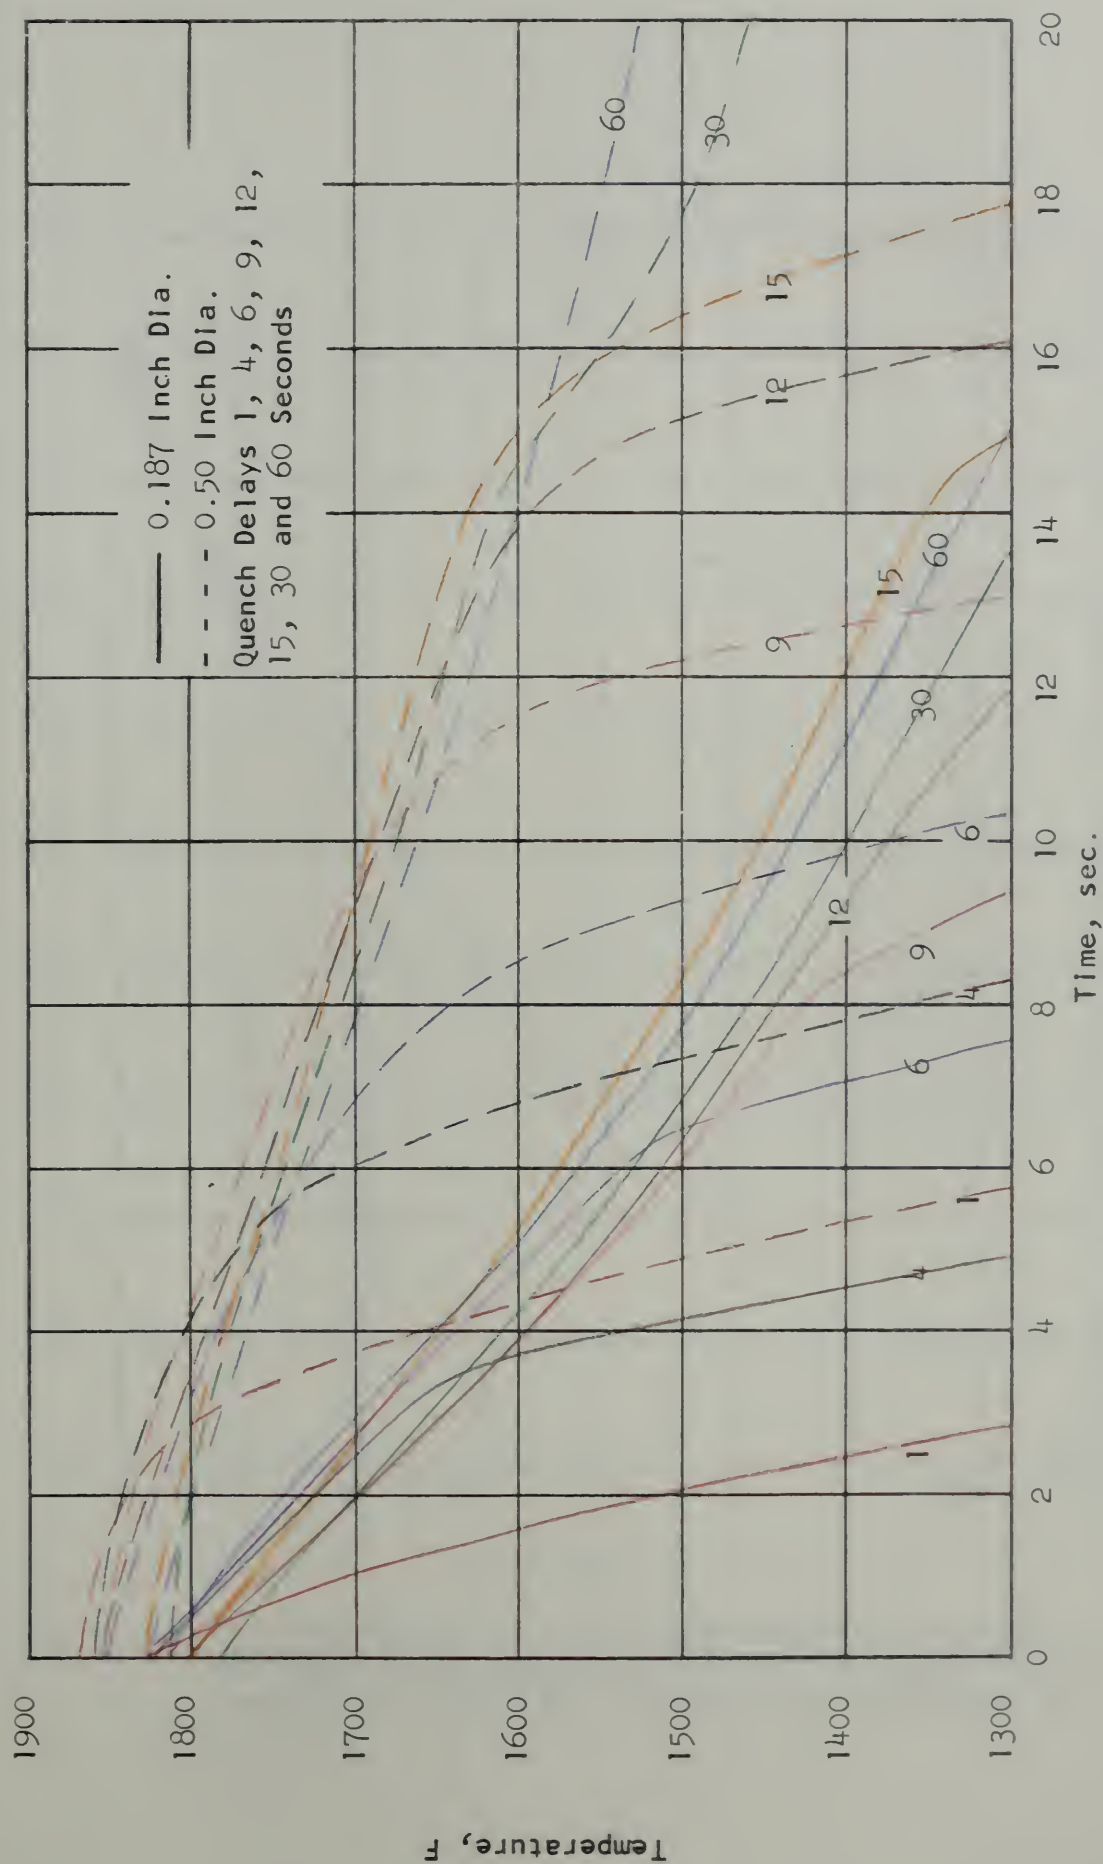 0.187 Inch Dia.
0.50 Inch Dia.
Quench Delays 1, 4, 6, 9, 12,
15, 30 and 60 Seconds
Temperature, F
1900
1800
1700
1600
1500
1400
1300
0
2
4
6
8
10
12
14
16
18
20
Time, sec.
1
4
1
6
4
9
12
6
30
60
15
9
12
15
30
60